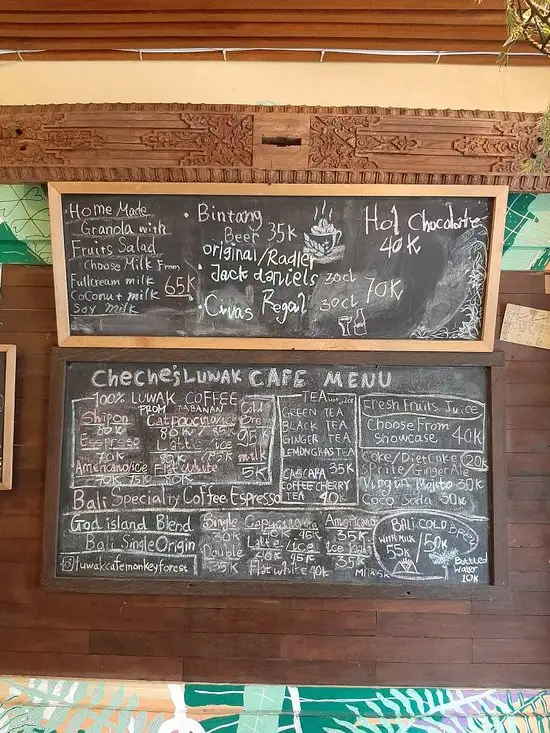 Home Made
Granola with
Fruits Salad
Choose Milk From
Fullcream milk 65K
Coconut milk
Soy milk
Bintang
Beer 35K
original/Radler
Jack daniels 30cl 70K
Civas Regal 30cl
Hot Chocolate
40K
Cheche's LUWAK CAFE MENU
100% LUWAK COFFEE
FROM TABANAN
Shipon Catpoocino/ice Cold
80K
Espresso Latte/ice 95
70K 80K milk
Americano/ice Flat White 5K
70K 75K 80K
TEA
GREEN TEA
BLACK TEA
GINGER TEA
LEMONGRAS TEA
35K
CASCARA
COFFEE CHERRY
TEA 40K
Fresh Fruits Juice
Choose From
Showcase 40K
Coke/Diet Coke 20K
Sprite/Ginger Ale
Virgin Mojito 30K
Coco Soda 30K
Bali Specialty Coffee Espresso
God island Blend
Bali Single Origin
luwakcafemonkeyforest
Single Capucinno/ice Americano
30K 40K 45K 35K
Double Latte/ice Ice Bali
35K 40K 45K 35K
Flat white 40K Milk 5K
BALI COLD BREW
WITH MILK 50K
55K
Bottled
Water
10K